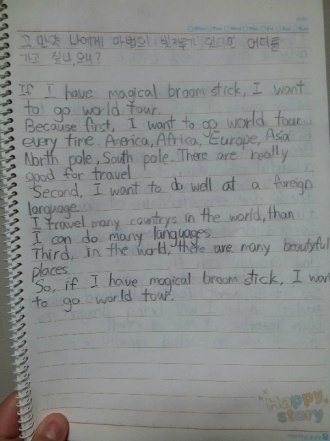 만약 나에게 마법의 빗자루가 있다면 어디를
가고 싶니, 왜?
If I have magical broom stick, I want
to go world tour.
Because first, I want to go world tour
every time. America, Africa, Europe, Asia
North pole, South pole. There are really
good for travel
Second, I want to do well at a foreign
language.
I travel many countrys in the world, than
I can do many languages.
Third, in the world, there are many beautiful
places.
So, if I have magical broom stick, I want
to go world tour.
Happy
story